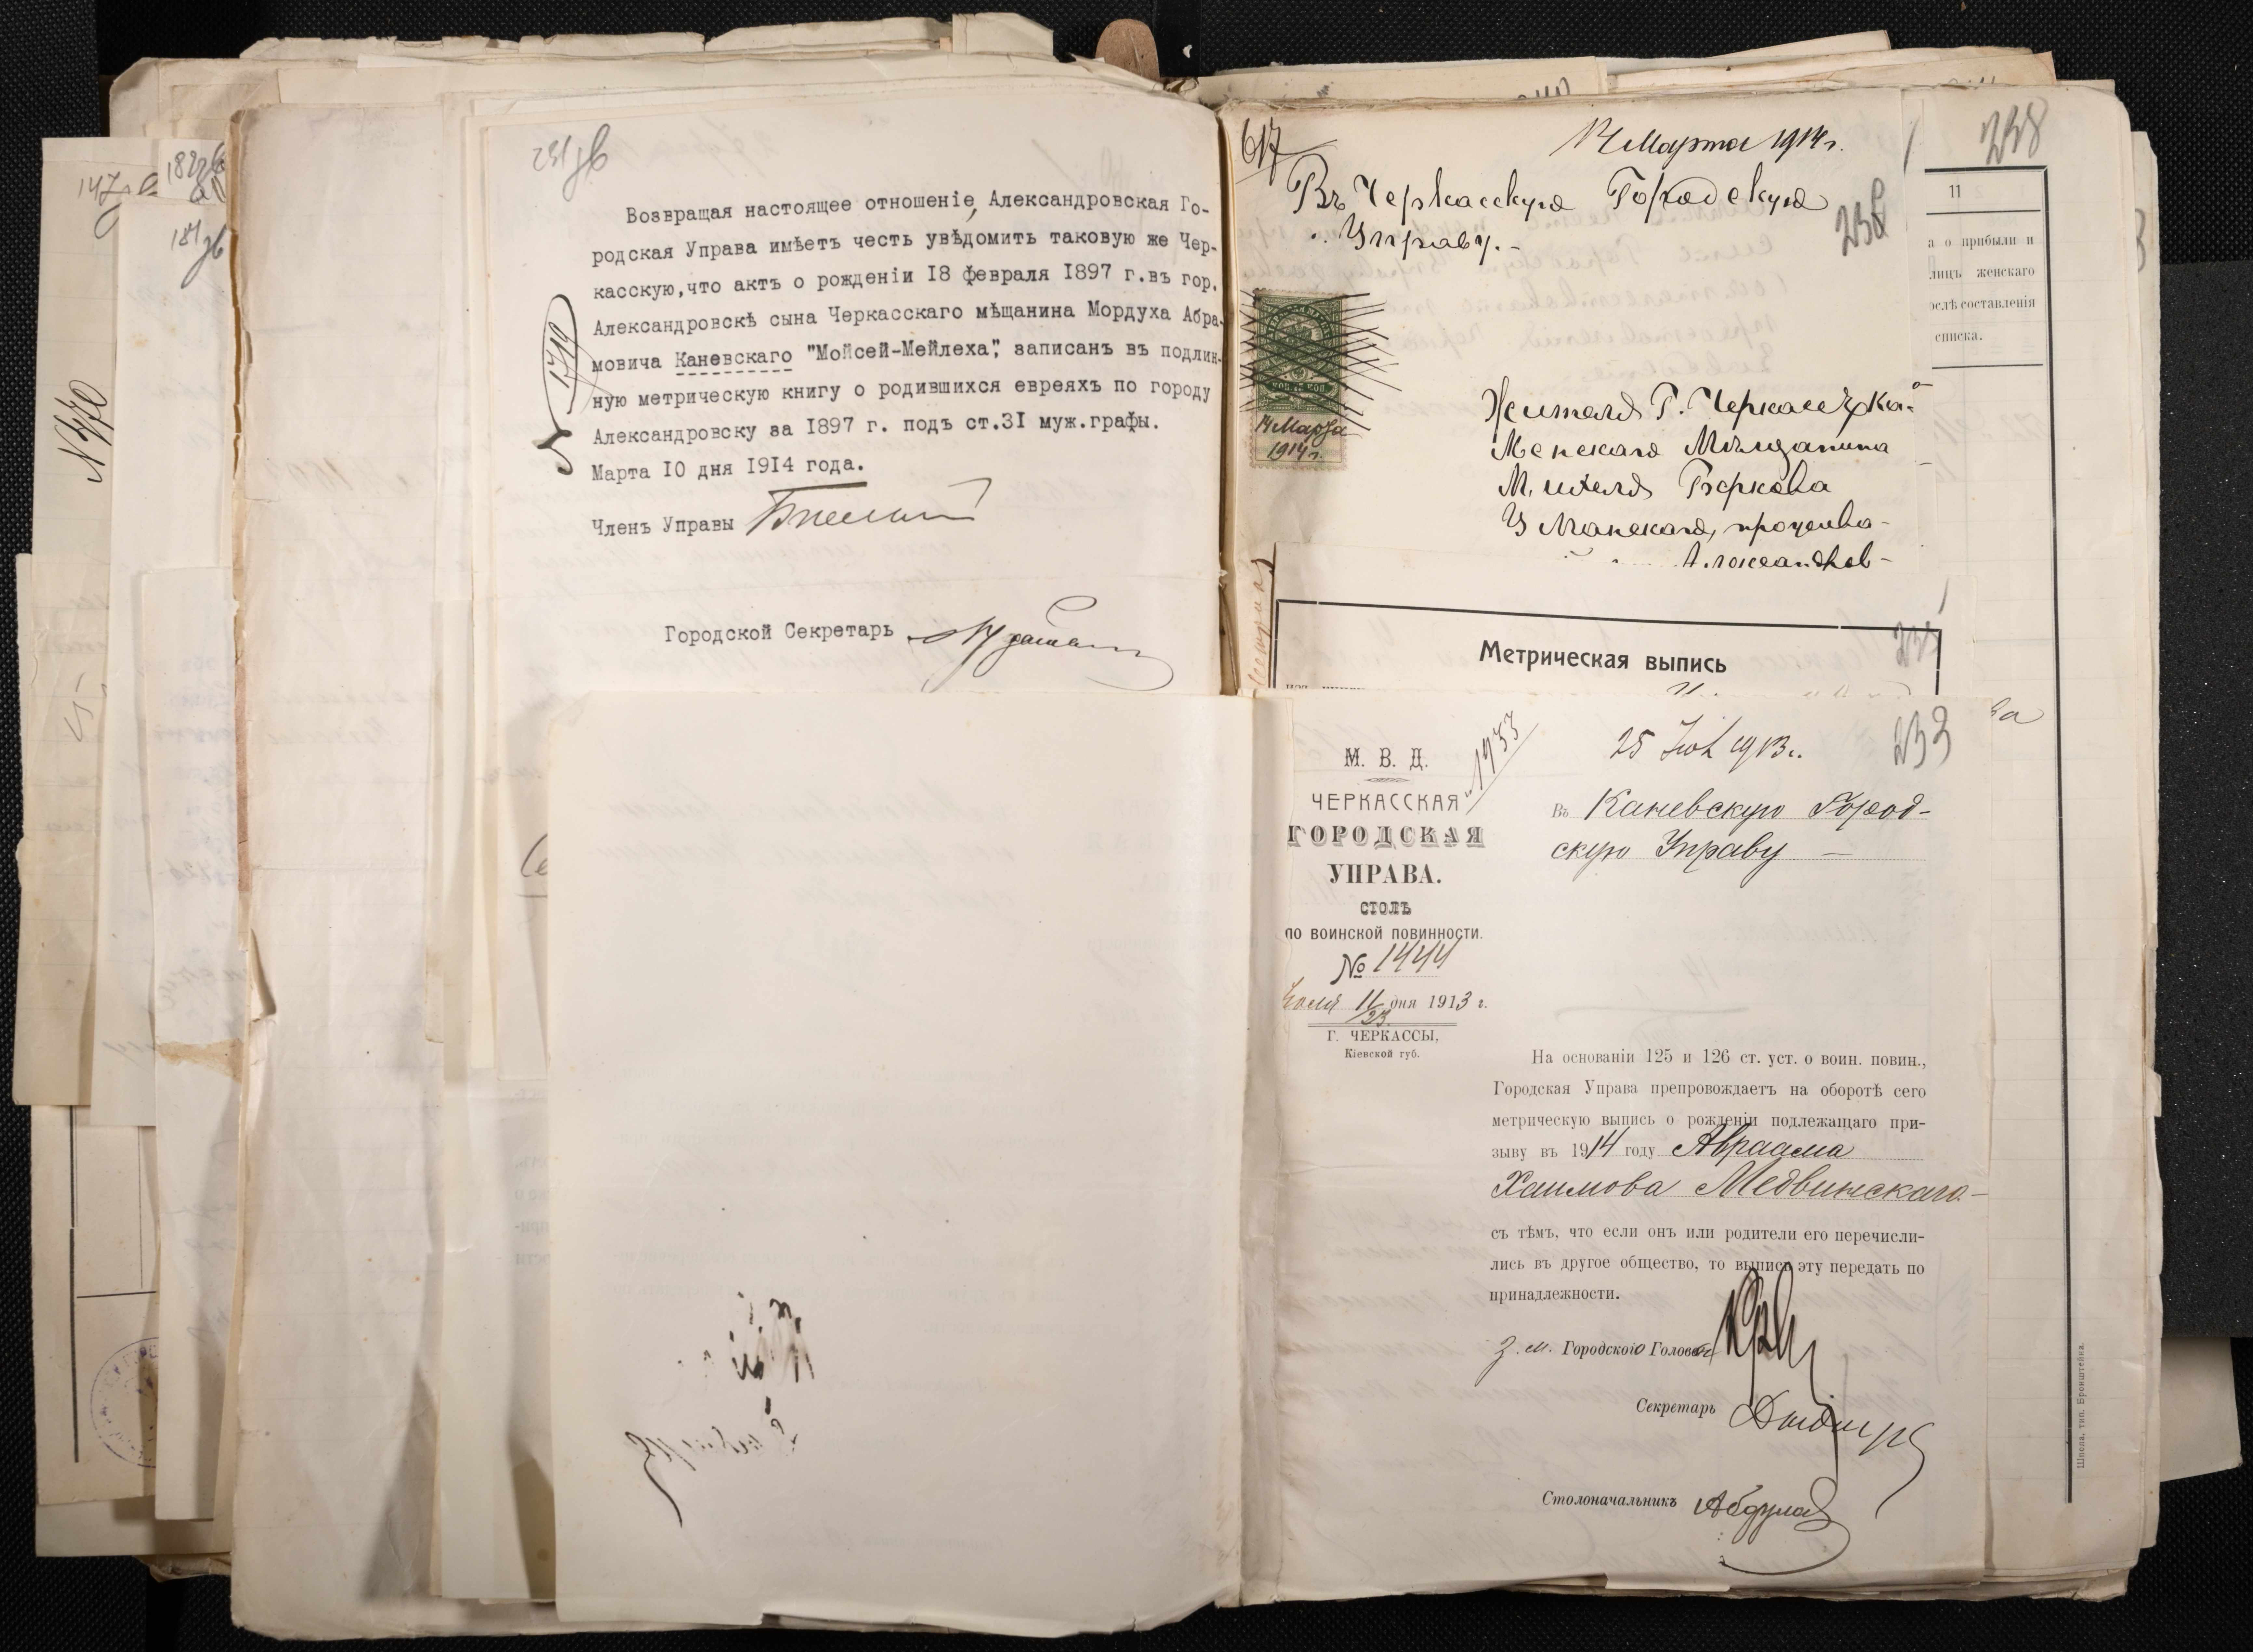 147
182
187
№ 770
231 об
Возвращая настоящее отношеніе, Александровская Го-
родская Управа имѣетъ честь увѣдомить таковую же Чер-
касскую,что актъ о рожденіи 18 февраля 1897 г.въ гор.
Александровскѣ сына Черкасскаго мѣщанина Мордуха Абра-
мовича Каневскаго "Мойсей-Мейлеха", записанъ въ подлин-
ную метрическую книгу о родившихся евреяхъ по городу
Александровску за 1897 г. подъ ст.31 муж.графы.
Марта 10 дня 1914 года.
1719
Членъ Управы
Городской Секретарь
617
14 Марта 1914 г.
238
Въ Черкасскую Городскую
Управу.-
238
КОП. 75 КОП
14 Марта
1914 г.
Жителя Г. Черкассъ, Ка-
Менскаго Мѣщанина
Михеля Беркова
Уманскаго, прожива-
Александров-
11
а о прибыли и
лицъ женскаго
ослѣ составленія
списка.
Метрическая выпись
М. В. Д.
1933
ЧЕРКАССКАЯ
ГОРОДСКАЯ
УПРАВА.
СТОЛЪ
по воинской повинности.
№ 1444
Іюля 11/23 дня 1913 г.
Г. ЧЕРКАССЫ,
Кіевской губ.
25 Іюл 1913 г.
233
Въ Каневскую Город-
скую Управу —
На основаніи 125 и 126 ст. уст. о воин. повин.,
Городская Управа препровождаетъ на оборотѣ сего
метрическую выпись о рожденіи подлежащаго при-
зыву въ 1914 году Авраама
Хаимова Медвинскаго-
съ тѣмъ, что если онъ или родители его перечисли-
лись въ другое общество, то выпись эту передать по
принадлежности.
З. м. Городского Головы
Секретарь
Столоначальникъ
Шпола, тип. Бронштейна.